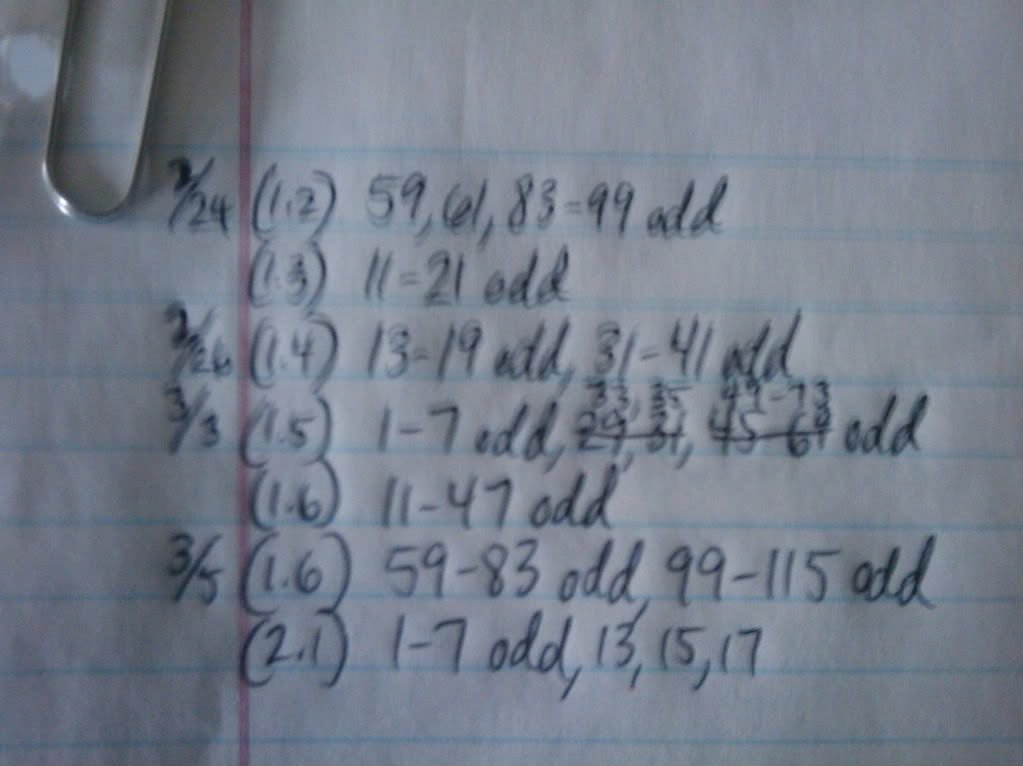 2/24 (1.2) 59, 61, 83-99 odd
(1.3) 11-21 odd
2/26 (1.4) 13-19 odd, 31-41 odd
33, 35 49-73
3/3 (1.5) 1-7 odd, 29, 31, 45-69 odd
(1.6) 11-47 odd
3/5 (1.6) 59-83 odd, 99-115 odd
(2.1) 1-7 odd, 13, 15, 17